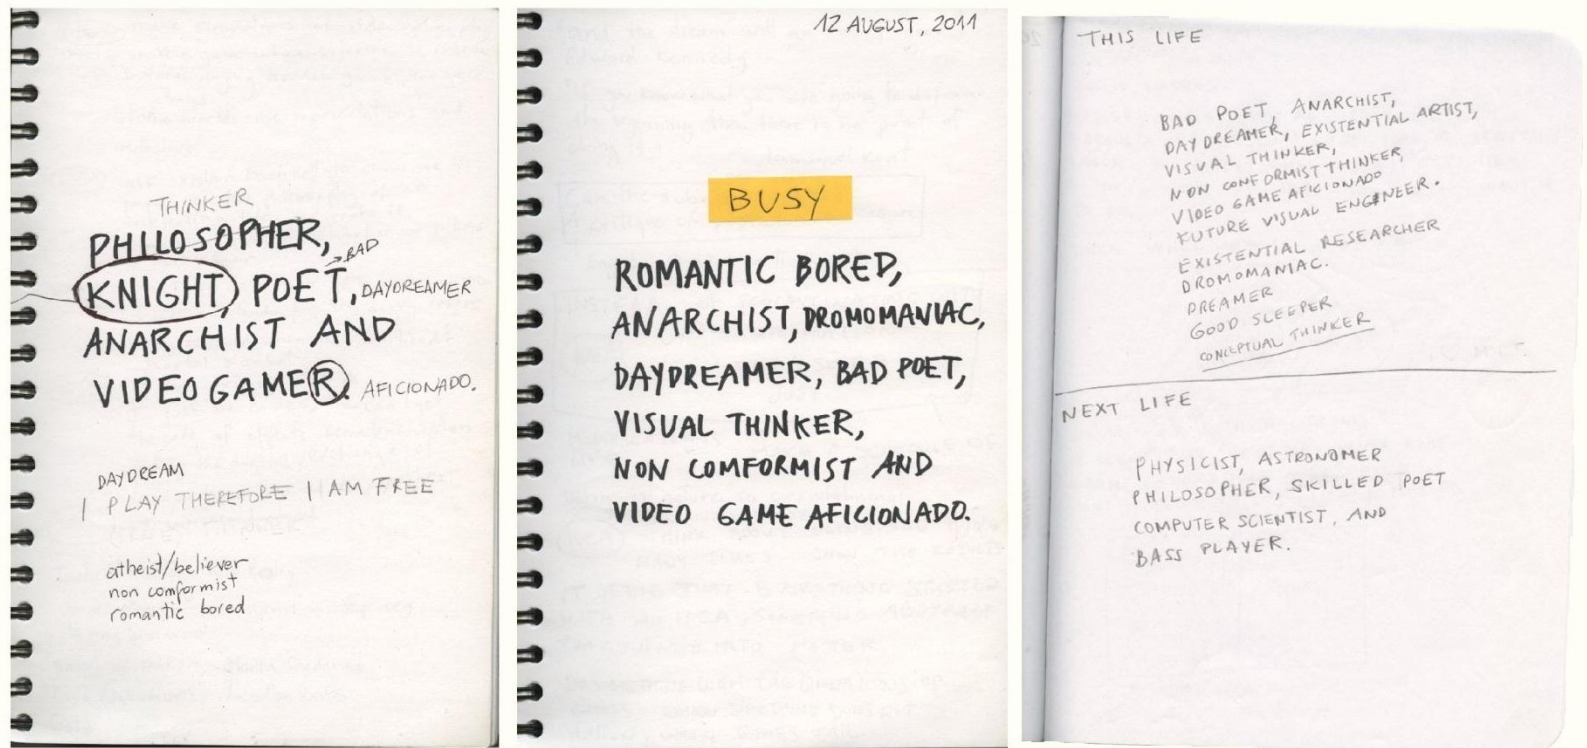 THINKER
PHILOSOPHER,
BAD
KNIGHT, POET, DAYDREAMER
ANARCHIST AND
VIDEO GAMER. AFICIONADO.
DAYDREAM
I PLAY THEREFORE I AM FREE
atheist/believer
non comformist
romantic bored
12 AUGUST, 2011
BUSY
ROMANTIC BORED,
ANARCHIST, DROMOMANIAC,
DAYDREAMER, BAD POET,
VISUAL THINKER,
NON COMFORMIST AND
VIDEO GAME AFICIONADO.
THIS LIFE
BAD POET, ANARCHIST,
DAYDREAMER, EXISTENTIAL ARTIST,
VISUAL THINKER,
NON CONFORMIST THINKER,
VIDEO GAME AFICIONADO
FUTURE VISUAL ENGINEER.
EXISTENTIAL RESEARCHER
DROMOMANIAC.
DREAMER
GOOD SLEEPER
CONCEPTUAL THINKER
NEXT LIFE
PHYSICIST, ASTRONOMER
PHILOSOPHER, SKILLED POET
COMPUTER SCIENTIST, AND
BASS PLAYER.